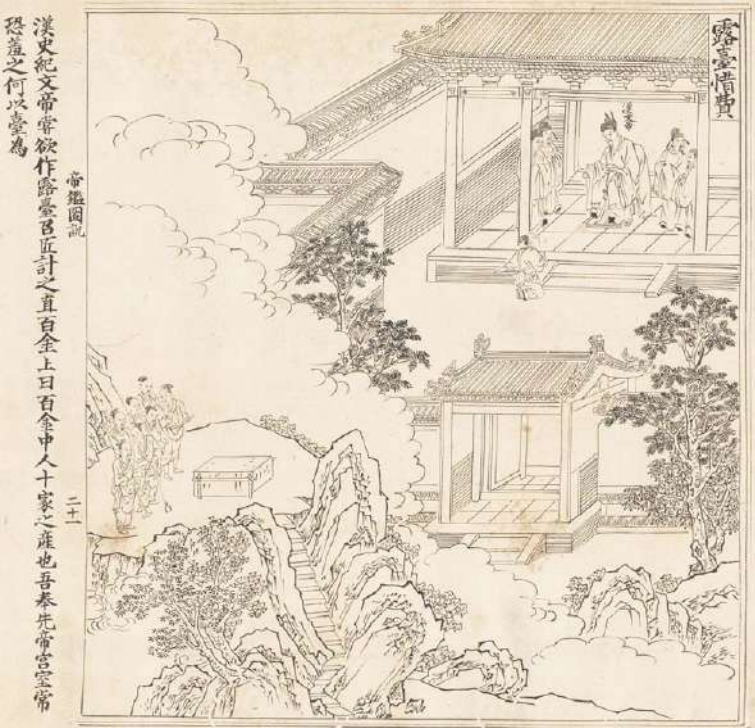 露臺惜費
漢文帝
帝鑑圖說
二十一
漢史紀文帝嘗欲作露臺召匠計之直百金上曰百金中人十家之產也吾奉先帝宮室常
恐羞之何以臺為